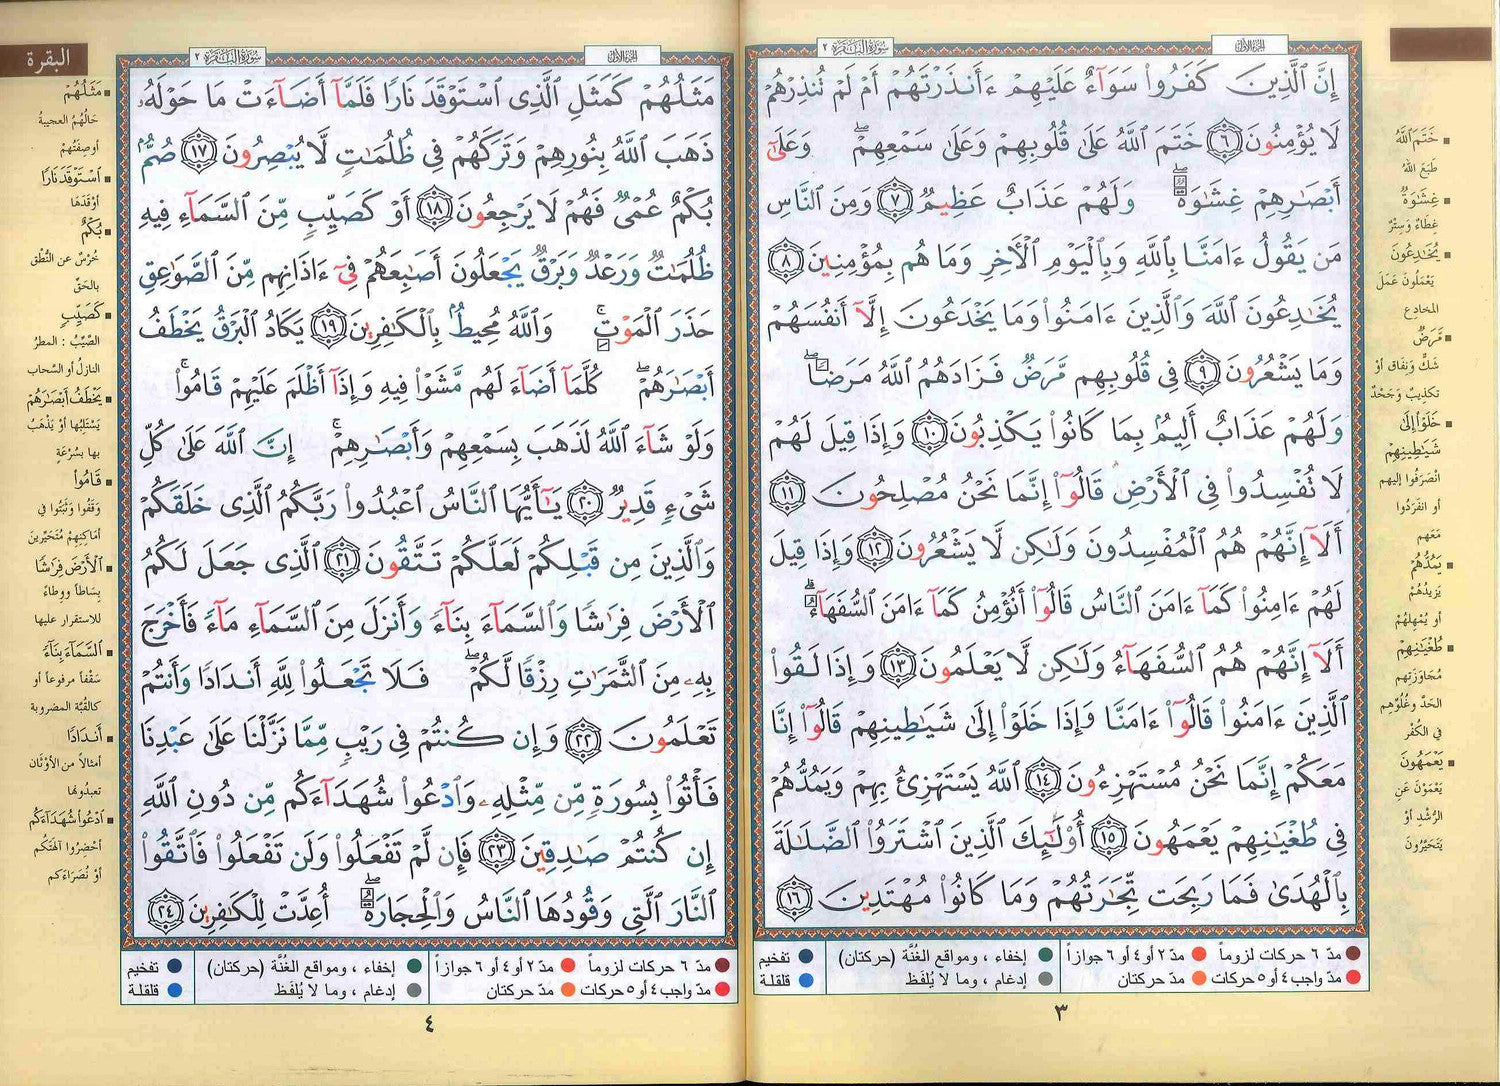 الجزء الأول
سورة البقرة ٢
إِنَّ ٱلَّذِينَ كَفَرُوا۟ سَوَآءٌ عَلَيْهِمْ ءَأَنذَرْتَهُمْ أَمْ لَمْ تُنذِرْهُمْ
لَا يُؤْمِنُونَ ٦ خَتَمَ ٱللَّهُ عَلَىٰ قُلُوبِهِمْ وَعَلَىٰ سَمْعِهِمْ ۖ وَعَلَىٰٓ
أَبْصَٰرِهِمْ غِشَٰوَةٌ ۖ وَلَهُمْ عَذَابٌ عَظِيمٌ ٧ وَمِنَ ٱلنَّاسِ
مَن يَقُولُ ءَامَنَّا بِٱللَّهِ وَبِٱلْيَوْمِ ٱلْأَخِرِ وَمَا هُم بِمُؤْمِنِينَ ٨
يُخَٰدِعُونَ ٱللَّهَ وَٱلَّذِينَ ءَامَنُوا۟ وَمَا يَخْدَعُونَ إِلَّآ أَنفُسَهُمْ
وَمَا يَشْعُرُونَ ٩ فِى قُلُوبِهِم مَّرَضٌ فَزَادَهُمُ ٱللَّهُ مَرَضًا ۖ
وَلَهُمْ عَذَابٌ أَلِيمٌۢ بِمَا كَانُوا۟ يَكْذِبُونَ ١٠ وَإِذَا قِيلَ لَهُمْ
لَا تُفْسِدُوا۟ فِى ٱلْأَرْضِ قَالُوٓا۟ إِنَّمَا نَحْنُ مُصْلِحُونَ ١١
أَلَآ إِنَّهُمْ هُمُ ٱلْمُفْسِدُونَ وَلَٰكِن لَّا يَشْعُرُونَ ١٢ وَإِذَا قِيلَ
لَهُمْ ءَامِنُوا۟ كَمَآ ءَامَنَ ٱلنَّاسُ قَالُوٓا۟ أَنُؤْمِنُ كَمَآ ءَامَنَ ٱلسُّفَهَآءُ ۗ
أَلَآ إِنَّهُمْ هُمُ ٱلسُّفَهَآءُ وَلَٰكِن لَّا يَعْلَمُونَ ١٣ وَإِذَا لَقُوا۟
ٱلَّذِينَ ءَامَنُوا۟ قَالُوٓا۟ ءَامَنَّا وَإِذَا خَلَوْا۟ إِلَىٰ شَيَٰطِينِهِمْ قَالُوٓا۟ إِنَّا
مَعَكُمْ إِنَّمَا نَحْنُ مُسْتَهْزِءُونَ ١٤ ٱللَّهُ يَسْتَهْزِئُ بِهِمْ وَيَمُدُّهُمْ
فِى طُغْيَٰنِهِمْ يَعْمَهُونَ ١٥ أُو۟لَٰٓئِكَ ٱلَّذِينَ ٱشْتَرَوُا۟ ٱلضَّلَٰلَةَ
بِٱلْهُدَىٰ فَمَا رَبِحَت تِّجَٰرَتُهُمْ وَمَا كَانُوا۟ مُهْتَدِينَ ١٦
خَتَمَ ٱللَّهُ
طَبَعَ اللهُ
غِشَٰوَةٌ
غِطَاءٌ وَسِتْرٌ
يُخَٰدِعُونَ
يَعْمَلُونَ عَمَلَ
المخادِع
مَّرَضٌ
شَكٌّ وَنِفَاقٌ أَوْ
تكذيبٌ وَجَحْدٌ
خَلَوْا۟ إِلَىٰ
شَيَٰطِينِهِمْ
انْصَرَفُوا إليهم
أو انفَرَدُوا
مَعَهم
يَمُدُّهُمْ
يَزِيدُهُمْ
أو يُمْهِلُهُمْ
طُغْيَٰنِهِمْ
مُجَاوَزَتِهم
الحَدَّ وغُلُوِّهِم
في الكُفْر
يَعْمَهُونَ
يَعْمَوْنَ عَنِ
الرُّشْدِ أَوْ
يَتَحَيَّرُونَ
مدّ ٦ حركات لزوماً مدّ ٢ أو ٤ أو ٦ جوازاً إخفاء ، ومواقع الغُنَّة (حركتان) تفخيم
مدّ واجب ٤ أو ٥ حركات مدّ حركتان إدغام ، وما لا يُلفَظ قلقلة
٣
البقرة
الجزء الأول
سورة البقرة ٢
مَثَلُهُمْ كَمَثَلِ ٱلَّذِى ٱسْتَوْقَدَ نَارًا فَلَمَّآ أَضَآءَتْ مَا حَوْلَهُۥ
ذَهَبَ ٱللَّهُ بِنُورِهِمْ وَتَرَكَهُمْ فِى ظُلُمَٰتٍ لَّا يُبْصِرُونَ ١٧ صُمٌّۢ
بُكْمٌ عُمْىٌ فَهُمْ لَا يَرْجِعُونَ ١٨ أَوْ كَصَيِّبٍ مِّنَ ٱلسَّمَآءِ فِيهِ
ظُلُمَٰتٌ وَرَعْدٌ وَبَرْقٌ يَجْعَلُونَ أَصَٰبِعَهُمْ فِىٓ ءَاذَانِهِم مِّنَ ٱلصَّوَٰعِقِ
حَذَرَ ٱلْمَوْتِ ۚ وَٱللَّهُ مُحِيطٌۢ بِٱلْكَٰفِرِينَ ١٩ يَكَادُ ٱلْبَرْقُ يَخْطَفُ
أَبْصَٰرَهُمْ ۖ كُلَّمَآ أَضَآءَ لَهُم مَّشَوْا۟ فِيهِ وَإِذَآ أَظْلَمَ عَلَيْهِمْ قَامُوا۟ ۚ
وَلَوْ شَآءَ ٱللَّهُ لَذَهَبَ بِسَمْعِهِمْ وَأَبْصَٰرِهِمْ ۚ إِنَّ ٱللَّهَ عَلَىٰ كُلِّ
شَىْءٍ قَدِيرٌ ٢٠ يَٰٓأَيُّهَا ٱلنَّاسُ ٱعْبُدُوا۟ رَبَّكُمُ ٱلَّذِى خَلَقَكُمْ
وَٱلَّذِينَ مِن قَبْلِكُمْ لَعَلَّكُمْ تَتَّقُونَ ٢١ ٱلَّذِى جَعَلَ لَكُمُ
ٱلْأَرْضَ فِرَٰشًا وَٱلسَّمَآءَ بِنَآءً وَأَنزَلَ مِنَ ٱلسَّمَآءِ مَآءً فَأَخْرَجَ
بِهِۦ مِنَ ٱلثَّمَرَٰتِ رِزْقًا لَّكُمْ ۖ فَلَا تَجْعَلُوا۟ لِلَّهِ أَندَادًا وَأَنتُمْ
تَعْلَمُونَ ٢٢ وَإِن كُنتُمْ فِى رَيْبٍ مِّمَّا نَزَّلْنَا عَلَىٰ عَبْدِنَا
فَأْتُوا۟ بِسُورَةٍ مِّن مِّثْلِهِۦ وَٱدْعُوا۟ شُهَدَآءَكُم مِّن دُونِ ٱللَّهِ
إِن كُنتُمْ صَٰدِقِينَ ٢٣ فَإِن لَّمْ تَفْعَلُوا۟ وَلَن تَفْعَلُوا۟ فَٱتَّقُوا۟
ٱلنَّارَ ٱلَّتِى وَقُودُهَا ٱلنَّاسُ وَٱلْحِجَارَةُ ۖ أُعِدَّتْ لِلْكَٰفِرِينَ ٢٤
مَثَلُهُمْ
حَالُهُمُ العجيبةُ
أو صِفَتُهُمْ
ٱسْتَوْقَدَ نَارًا
أوْقَدَهَا
بُكْمٌ
خُرْسٌ عن النُّطْقِ
بالحَقّ
كَصَيِّبٍ
الصَّيِّبُ : المطرُ
النازلُ أو السَّحاب
يَخْطَفُ أَبْصَٰرَهُمْ
يَسْتَلِبُها أَوْ يَذْهَبُ
بها بسُرْعَةٍ
قَامُوا۟
وَقَفُوا وَثَبَتُوا في
أمَاكِنِهِمْ مُتَحَيِّرينَ
ٱلْأَرْضَ فِرَٰشًا
بِسَاطاً ووِطَاءً
للاستقرار عليها
ٱلسَّمَآءَ بِنَآءً
سَقْفاً مرفوعاً أو
كالقُبَّة المضروبة
أَندَادًا
أمثالاً من الأوْثَان
تعبدُونَها
ٱدْعُوا۟ شُهَدَآءَكُم
أحْضِرُوا آلهَتَكُم
أوْ نُصَرَاءَكم
مدّ ٦ حركات لزوماً مدّ ٢ أو ٤ أو ٦ جوازاً إخفاء ، ومواقع الغُنَّة (حركتان) تفخيم
مدّ واجب ٤ أو ٥ حركات مدّ حركتان إدغام ، وما لا يُلفَظ قلقلة
٤